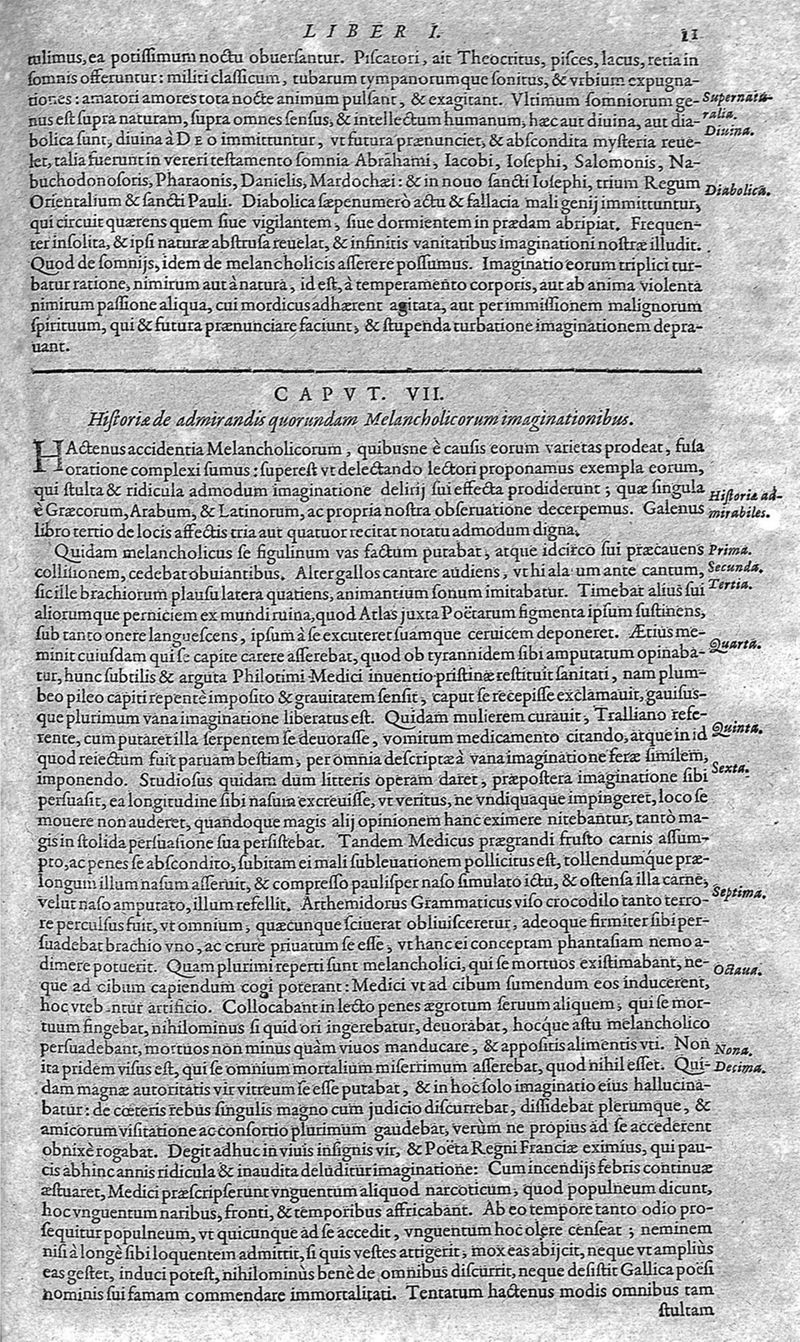 LIBER I. 11
tulimus, ea potissimum noctu obuersantur. Piscatori, ait Theocritus, pisces, lacus, retia in
somnis offeruntur: militi classicum, tubarum tympanorumque sonitus, & vrbium expugna-
tiones: amatori amores tota nocte animum pulsant, & exagitant. Vltimum somniorum ge-
nus est supra naturam, supra omnes sensus, & intellectum humanum, hæc aut diuina, aut dia-
bolica sunt, diuina à DEO immittuntur, vt futura prænunciet, & abscondita mysteria reue-
let, talia fuerunt in veteri testamento somnia Abrahami, Iacobi, Iosephi, Salomonis, Na-
buchodonosoris, Pharaonis, Danielis, Mardochæi: & in nouo sancti Iosephi, trium Regum
Orientalium & sancti Pauli. Diabolica sæpenumerò actu & fallacia mali genij immittuntur,
qui circuit quærens quem siue vigilantem, siue dormientem in prædam abripiat. Frequen-
ter insolita, & ipsi naturæ abstrusa reuelat, & infinitis vanitatibus imaginationi nostræ illudit.
Quod de somnijs, idem de melancholicis asserere possumus. Imaginatio eorum triplici tur-
batur ratione, nimirum aut à naturâ, id est, à temperamento corporis, aut ab anima violenta
nimirum passione aliqua, cui mordicus adhærent agitata, aut per immissionem malignorum
spirituum, qui & futura prænunciare faciunt, & stupenda turbatione imaginationem depra-
uant.
Supernatu-
ralia.
Diuina.
Diabolica.
CAPVT. VII.
Historiæ de admirandis quorundam Melancholicorum imaginationibus.
HActenus accidentia Melancholicorum, quibusne è causis eorum varietas prodeat, fusa
oratione complexi sumus: superest vt delectando lectori proponamus exempla eorum,
qui stulta & ridicula admodum imaginatione delirij sui effecta prodiderunt; quæ singula
è Græcorum, Arabum, & Latinorum, ac propria nostra obseruatione decerpemus. Galenus
libro tertio de locis affectis tria aut quatuor recitat notatu admodum digna.
Quidam melancholicus se figulinum vas factum putabat, atque idcirco sui præcauens
collisionem, cedebat obuiantibus. Alter gallos cantare audiens, vt hi ala um ante cantum,
sic ille brachiorum plausu latera quatiens, animantium sonum imitabatur. Timebat alius sui
aliorumque perniciem ex mundi ruina, quod Atlas juxta Poëtarum figmenta ipsum sustinens,
sub tanto onere languescens, ipsum à se excuteret suamque ceruicem deponeret. Ætius me-
minit cuiusdam qui se capite carere asserebat, quod ob tyrannidem sibi amputatum opinaba-
tur, hunc subtilis & arguta Philotimi Medici inuentio pristinæ restituit sanitati, nam plum-
beo pileo capiti repentè imposito & grauitatem sensit, caput se recepisse exclamauit, gauisus-
que plurimum vana imaginatione liberatus est. Quidam mulierem curauit, Tralliano refe-
rente, cum putaret illa serpentem se deuorasse, vomitum medicamento citando, atque in id
quod reiectum fuit paruam bestiam, per omnia descriptæ à vana imaginatione feræ similem,
imponendo. Studiosus quidam dum litteris operam daret, præpostera imaginatione sibi
persuasit, ea longitudine sibi nasum excreuisse, vt veritus, ne vndiquaque impingeret, loco se
mouere non auderet, quandoque magis alij opinionem hanc eximere nitebantur, tantò ma-
gis in stolida persuasione sua persistebat. Tandem Medicus prægrandi frusto carnis assum-
pto, ac penes se abscondito, subitam ei mali subleuationem pollicitus est, tollendumq́ue præ-
longum illum nasum asseruit, & compresso paulisper naso simulato ictu, & ostensa illa carne,
velut naso amputato, illum refellit. Arthemidorus Grammaticus viso crocodilo tanto terro-
re perculsus fuit, vt omnium, quæcunque sciuerat obliuisceretur, adeoque firmiter sibi per-
suadebat brachio vno, ac crure priuatum se esse, vt hanc ei conceptam phantasiam nemo a-
dimere potuerit. Quam plurimi reperti sunt melancholici, qui se mortuos existimabant, ne-
que ad cibum capiendum cogi poterant: Medici vt ad cibum sumendum eos inducerent,
hoc vteb ntur artificio. Collocabant in lecto penes ægrotum seruum aliquem, qui se mor-
tuum fingebat, nihilominus si quid ori ingerebatur, deuorabat, hocq́ue astu melancholico
persuadebant, mortuos non minus quàm viuos manducare, & appositis alimentis vti. Non
ita pridem visus est, qui se omnium mortalium miserrimum asserebat, quod nihil esset. Qui-
dam magnæ autoritatis vir vitreum se esse putabat, & in hoc solo imaginatio eius hallucina-
batur: de cœteris rebus singulis magno cum judicio discurrebat, dissidebat plerumque, &
amicorum visitatione ac consortio plurimum gaudebat, verùm ne propius ad se accederent
obnixè rogabat. Degit adhuc in viuis insignis vir, & Poëta Regni Franciæ eximius, qui pau-
cis abhinc annis ridicula & inaudita deluditur imaginatione: Cum incendijs febris continuæ
æstuaret, Medici præscripserunt vnguentum aliquod narcoticum, quod populneum dicunt,
hoc vnguentum naribus, fronti, & temporibus affricabant. Ab eo tempore tanto odio pro-
sequitur populneum, vt quicunque ad se accedit, vnguentum hoc olere censeat; neminem
nisi à longè sibi loquentem admittit, si quis vestes attigerit, mox eas abijcit, neque vt ampliùs
eas gestet, induci potest, nihilominùs benè de omnibus discurrit, neque desistit Gallica poësi
nominis sui famam commendare immortalitati. Tentatum hactenus modis omnibus tam
stultam
Historiæ ad-
mirabiles.
Prima.
Secunda.
Tertia.
Quarta.
Quinta.
Sexta.
Septima.
Octaua.
Nona.
Decima.